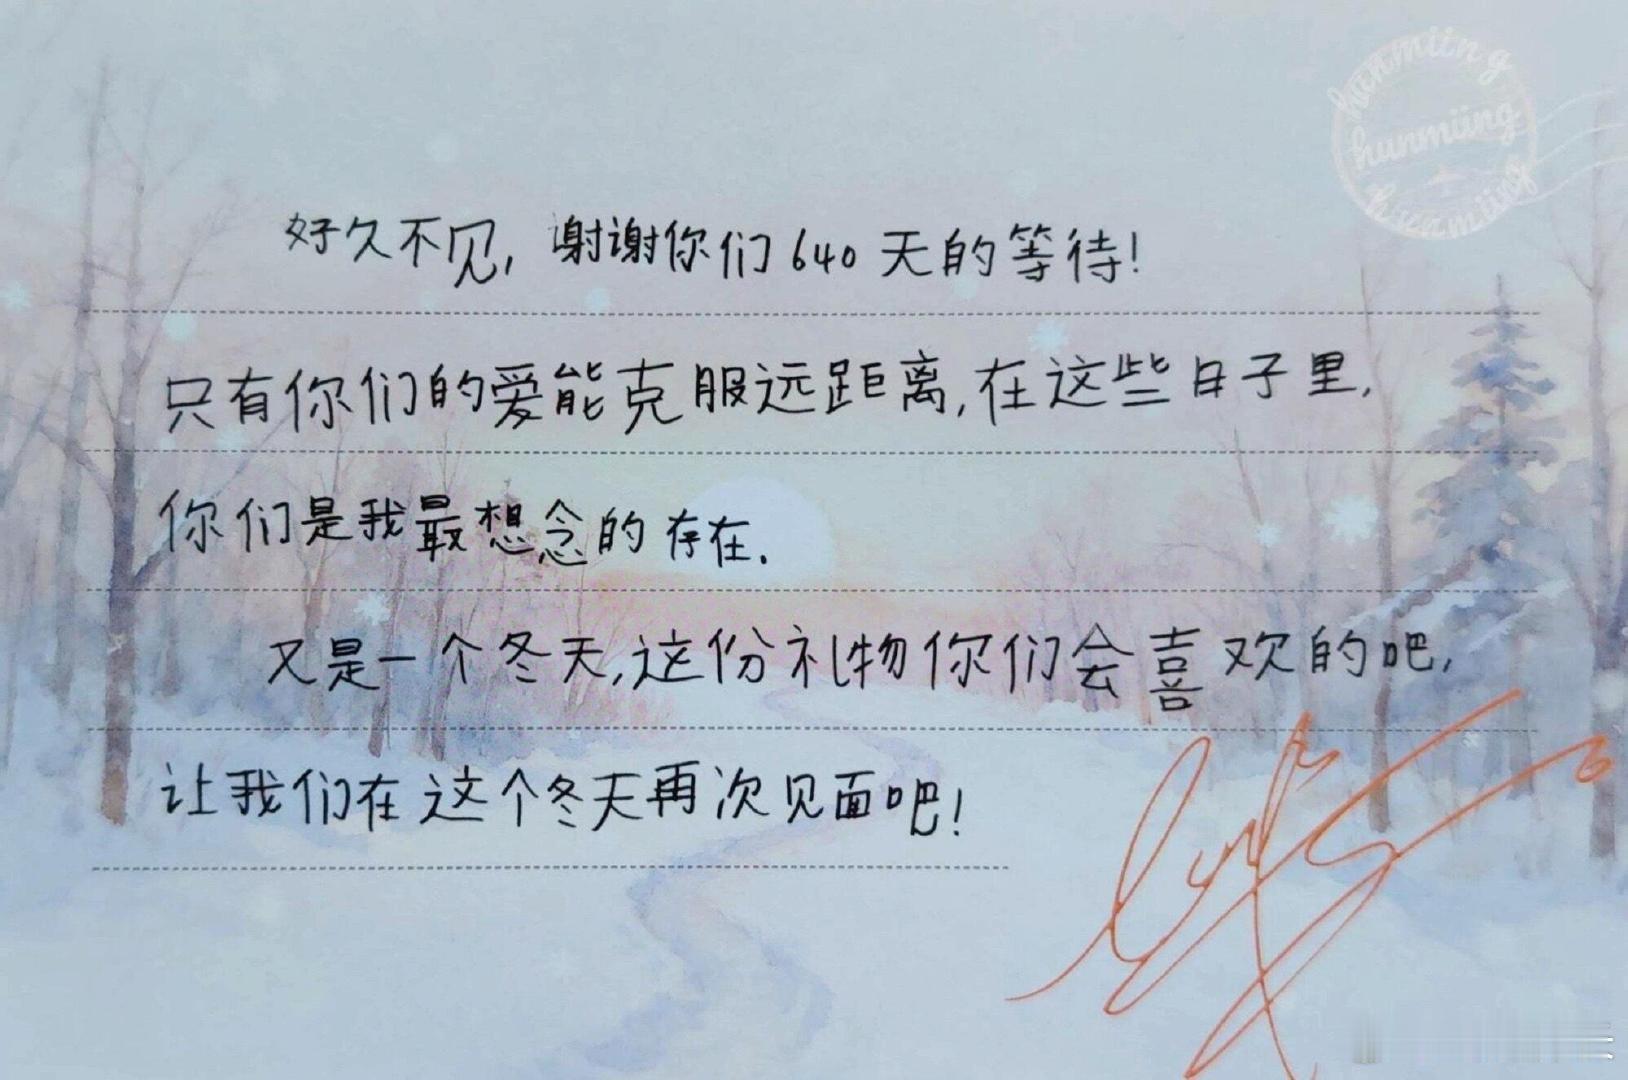 hanmiing
hunmiing
huenmiing
好久不见，谢谢你们640天的等待！
只有你们的爱能克服远距离，在这些日子里，
你们是我最想念的存在.
又是一个冬天，这份礼物你们会喜欢的吧，
让我们在这个冬天再次见面吧！